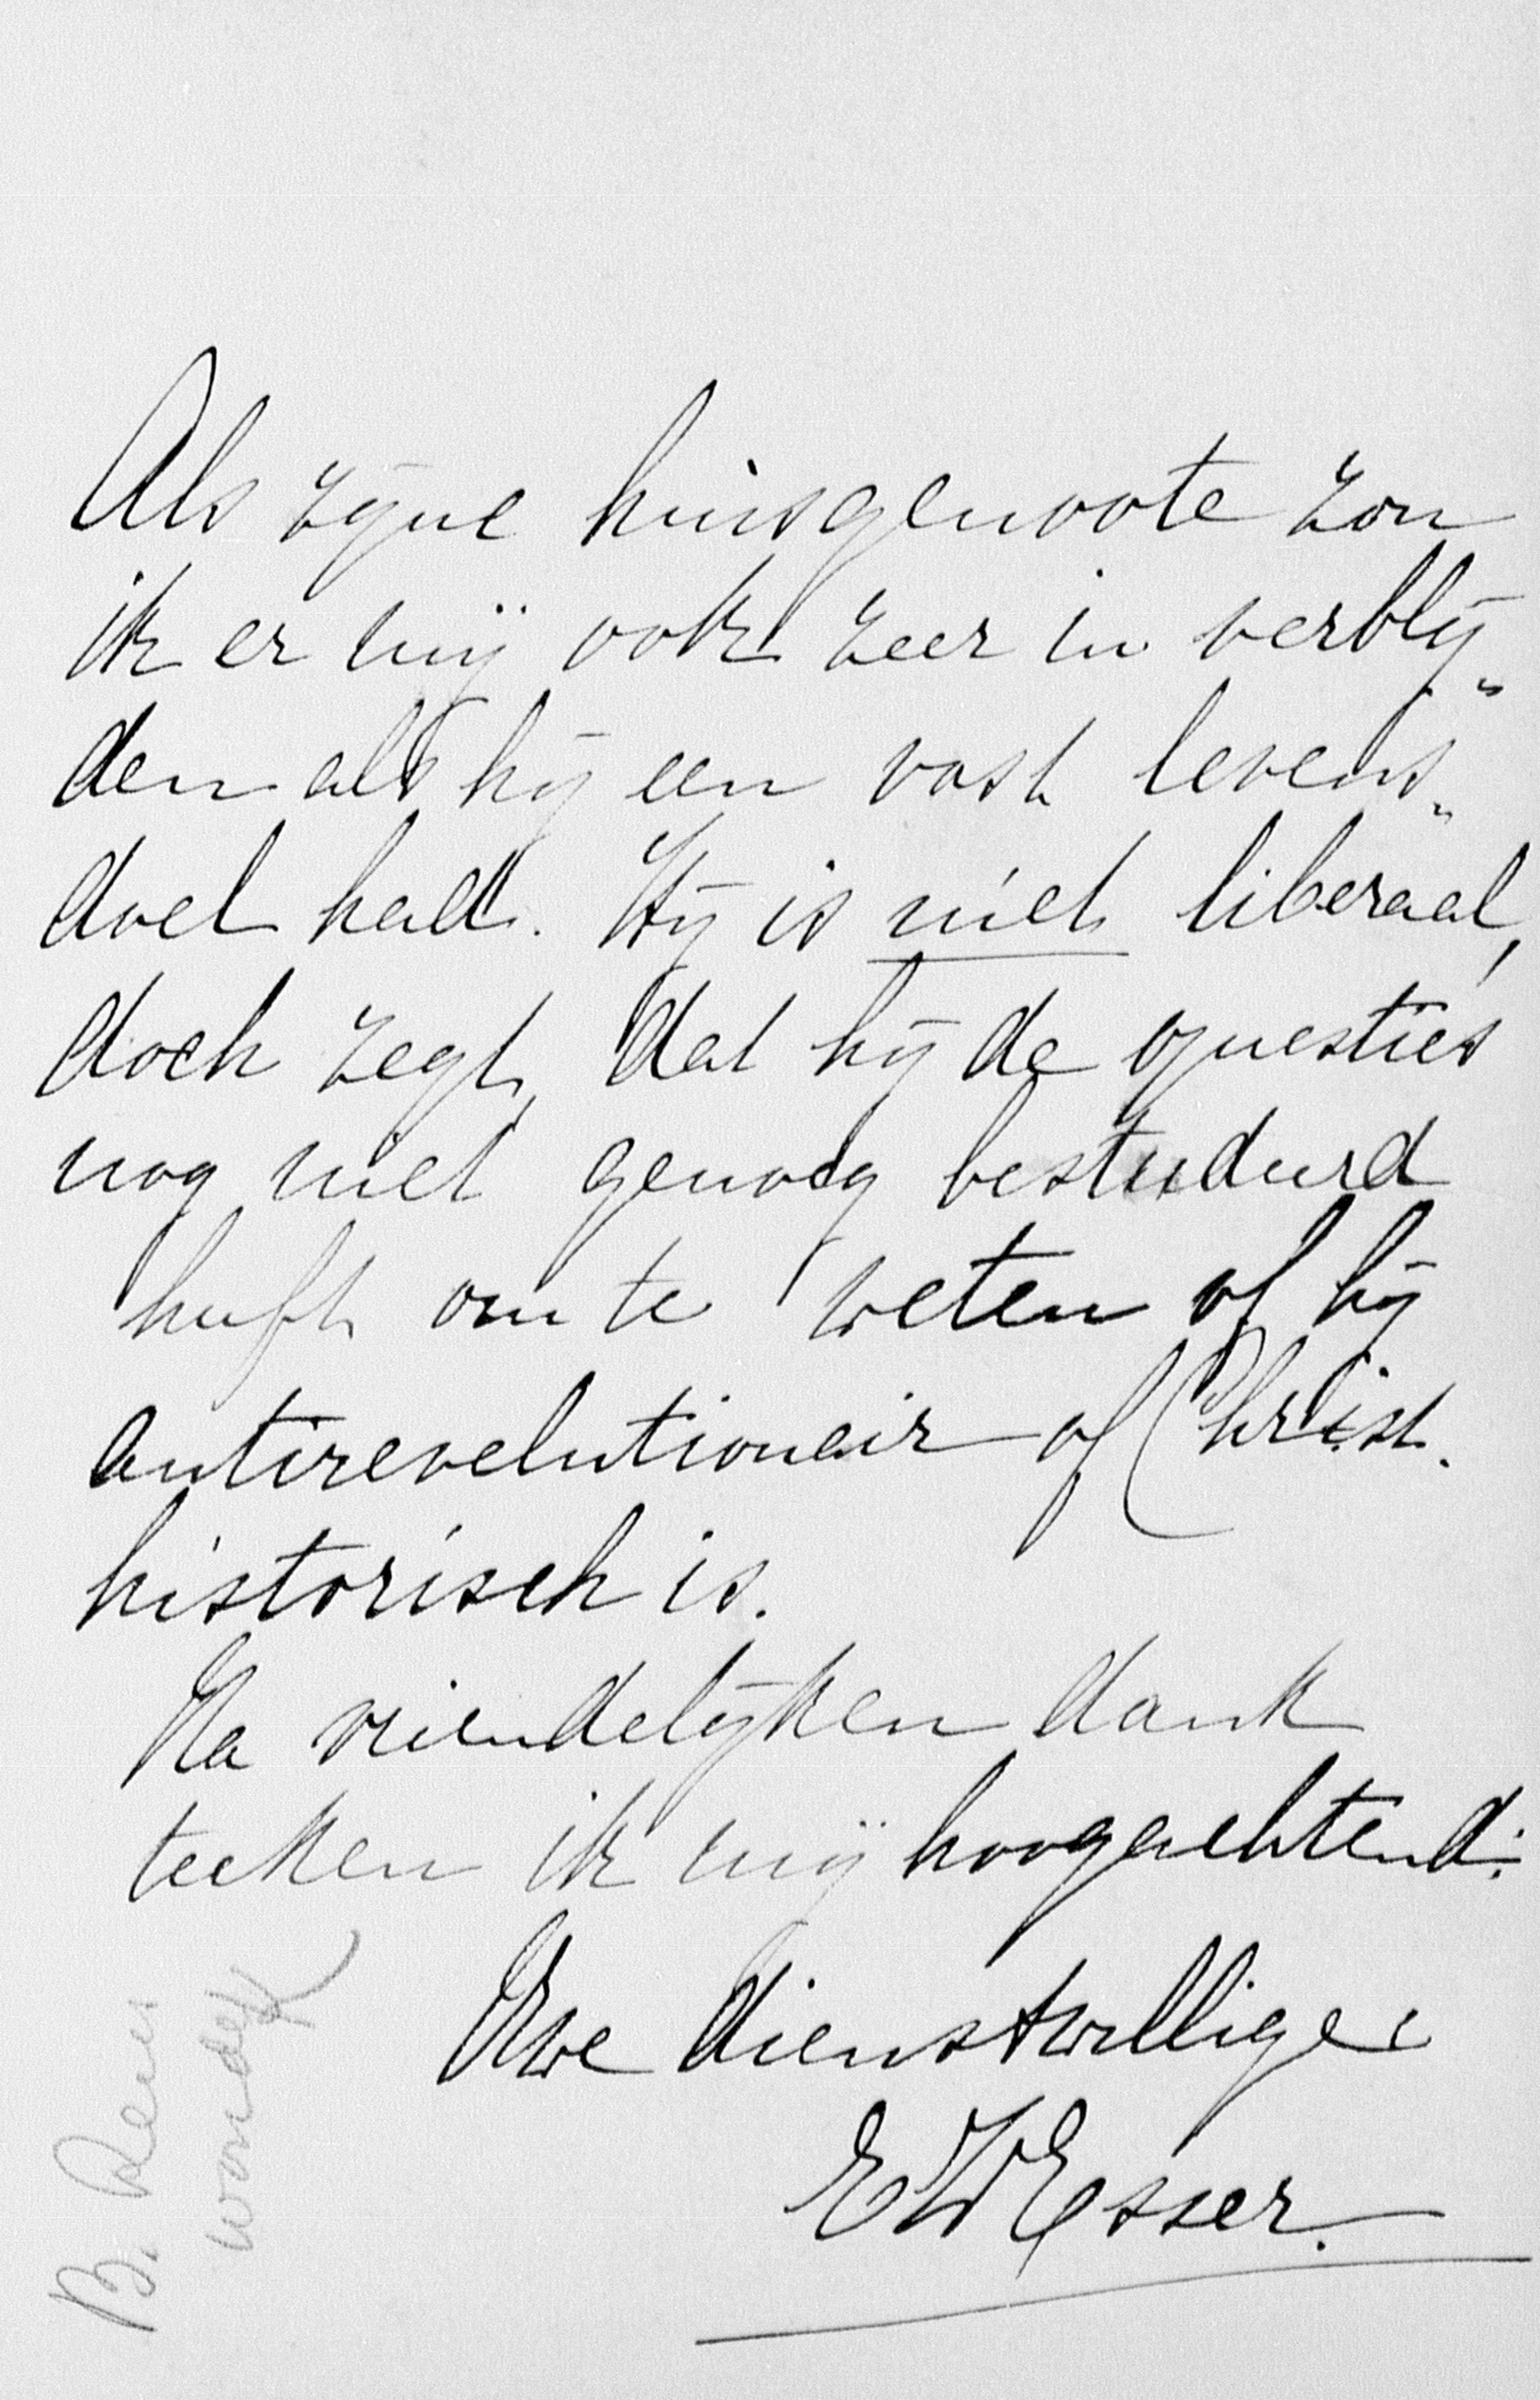 Als zijne huisgenoote zou
ik er mij ook zeer in verblij„
den als hij een vast levens„
doel had. Hij is niet liberaal,
doch zegt, dat hij de questies
nog niet genoeg bestudeerd
heeft om te weten of hij
antirevolutionair of Christ.
historisch is.
Na vriendelijken dank
teeken ik mij hoogachtend:
Uwe dienstwillige
EWEsser.
B.